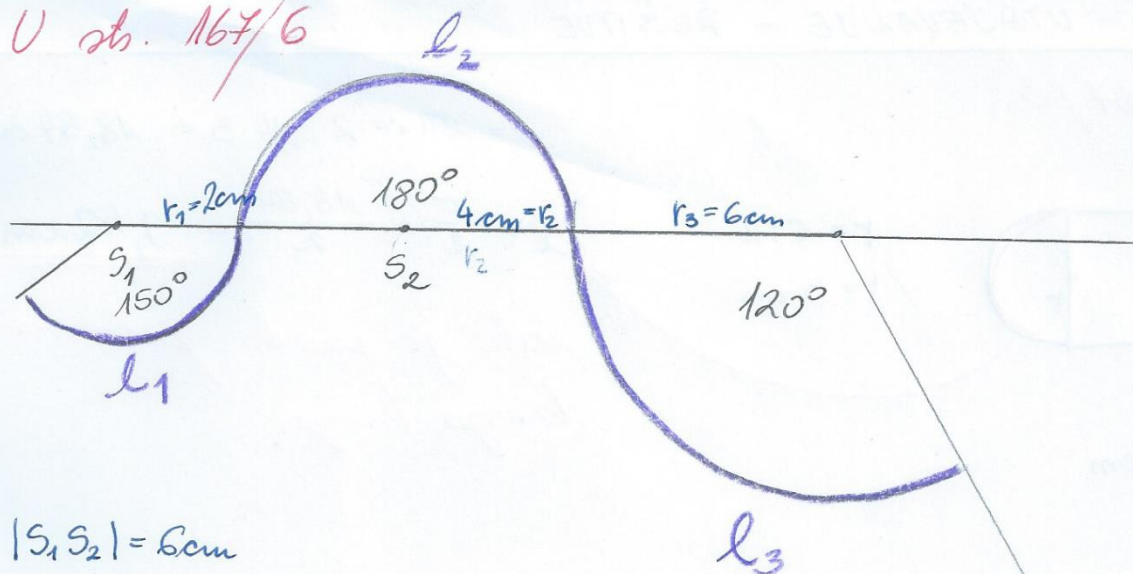 U str. 167/6
l₂
r₁=2cm
180°
4cm=r₂
r₃=6cm
S₁
r₂
S₂
150°
120°
l₁
|S₁S₂| = 6cm
l₃